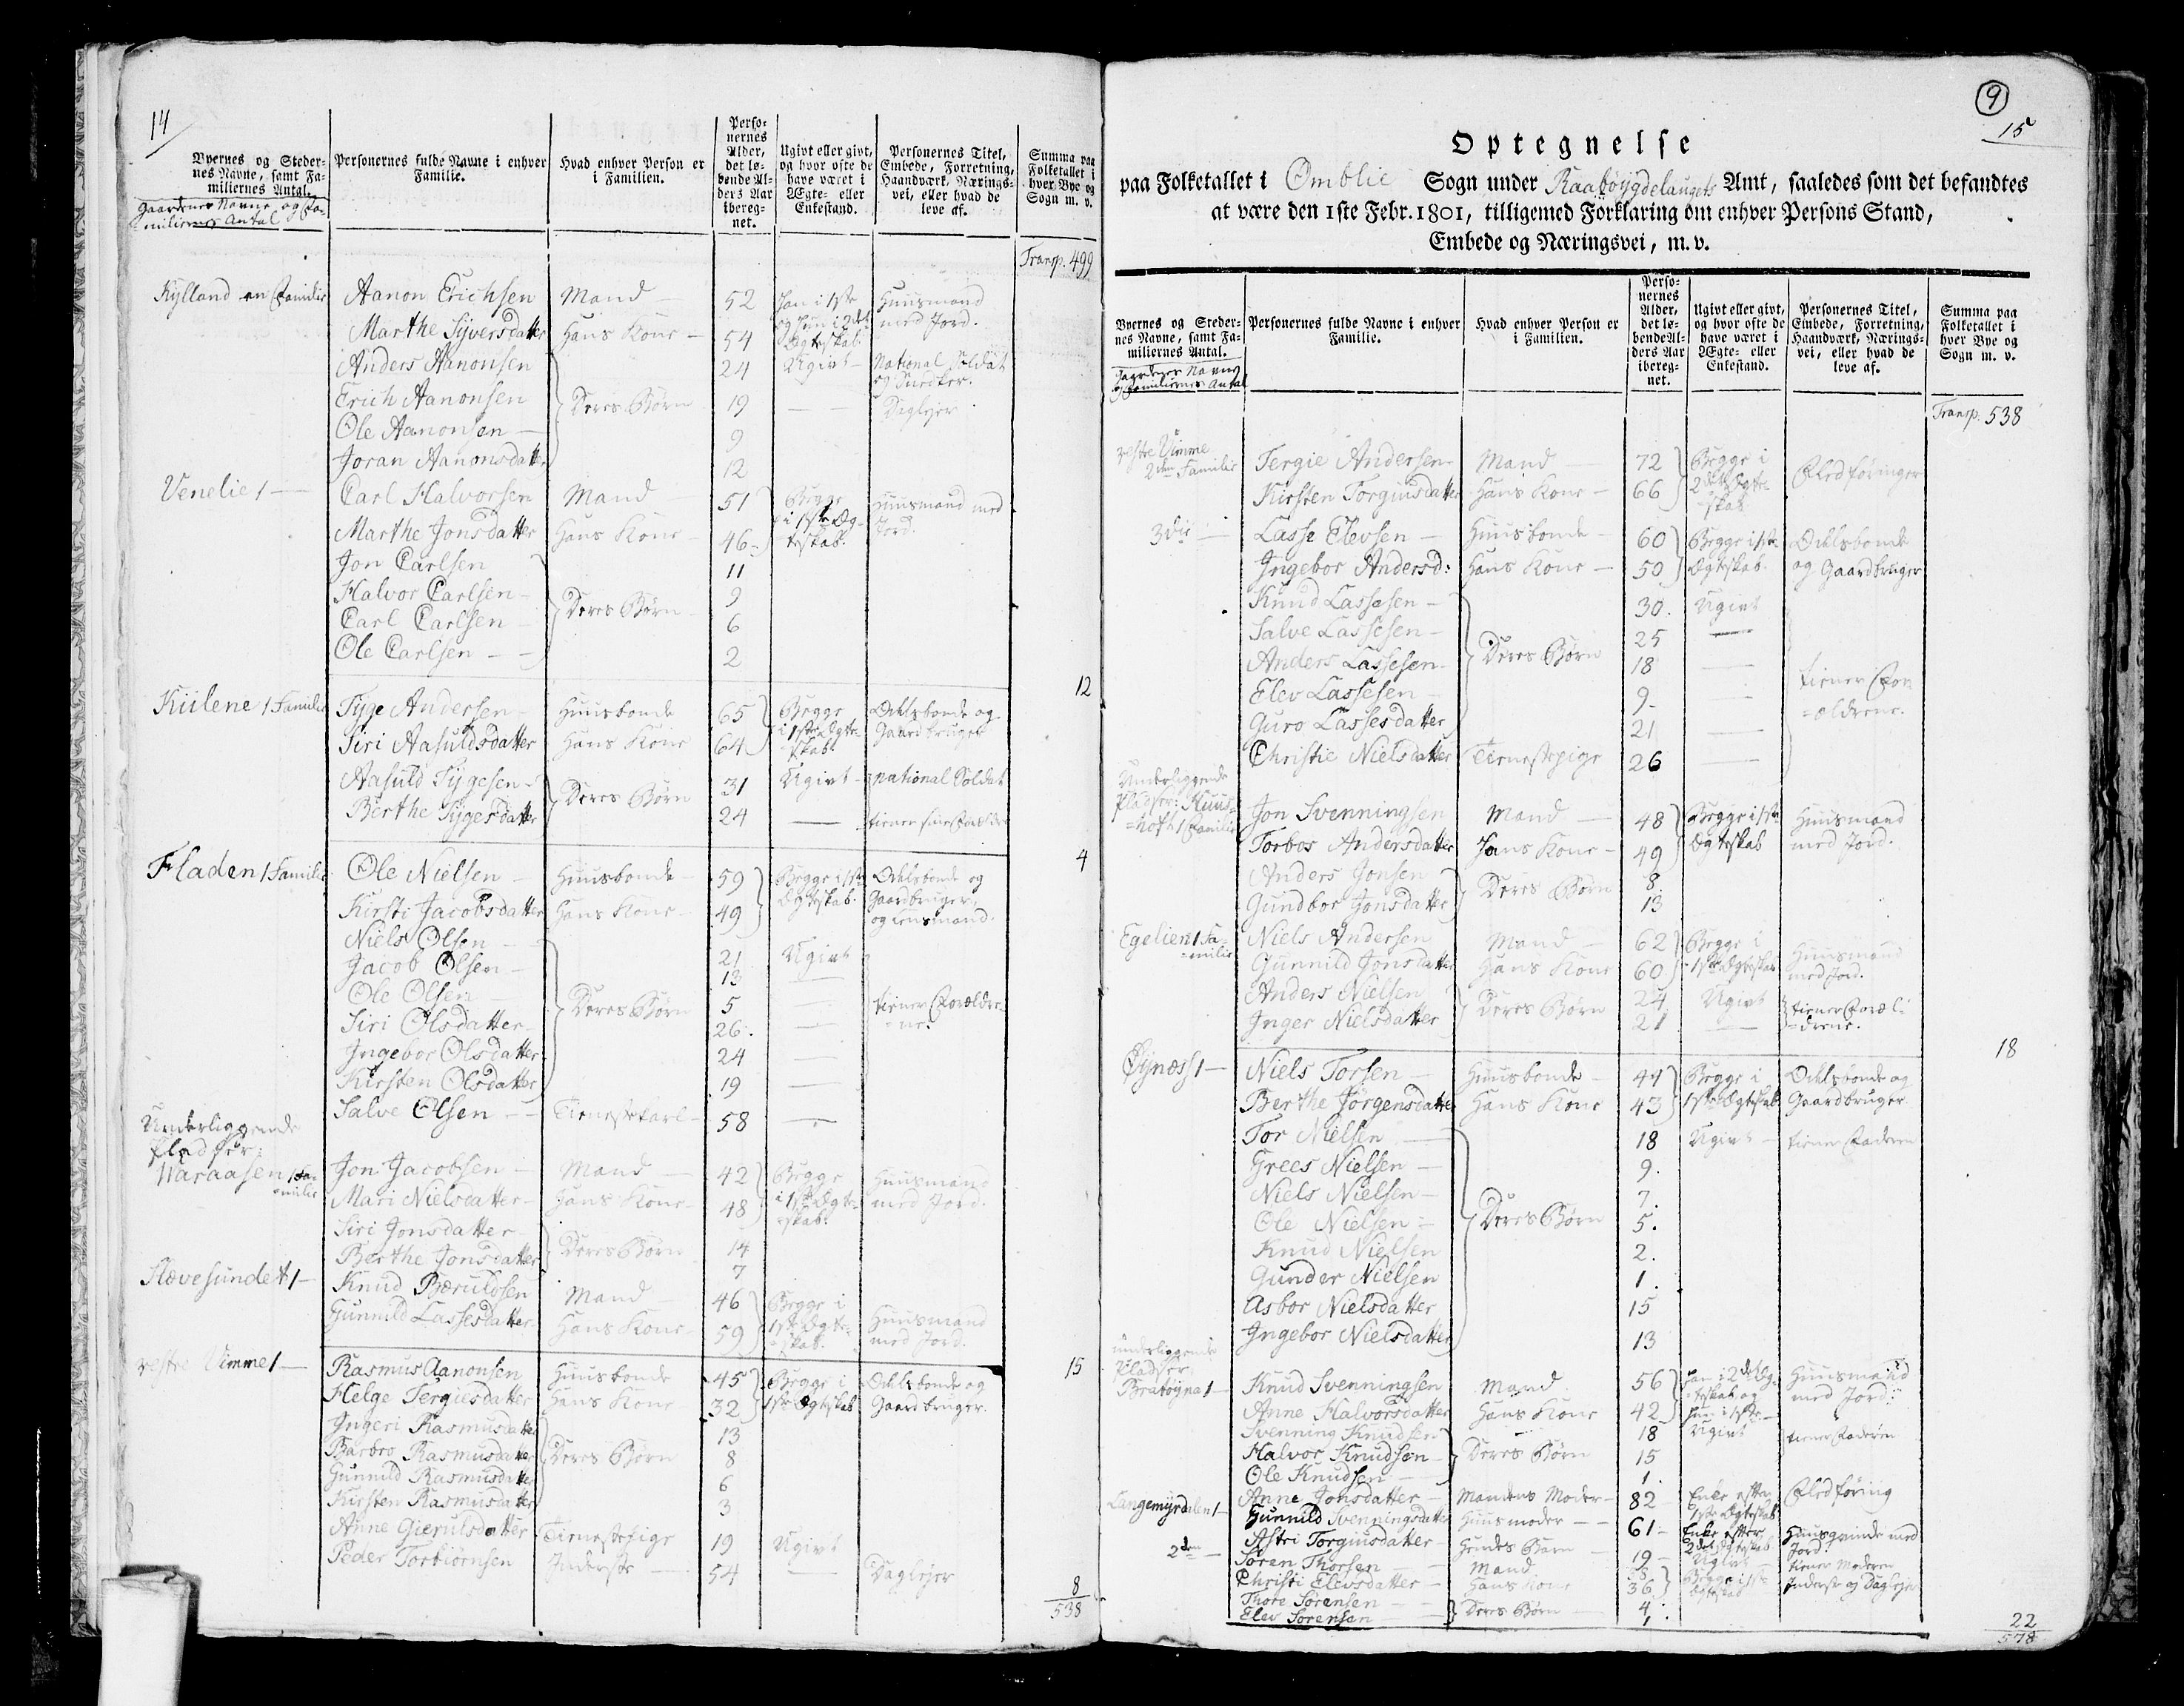 14
Byernes og Steder-
nes Navne, samt Fa-
miliernes Antal.
Gaardenes Navne og Fa-
miliernes Antal
Personernes fulde Navne i enhver
Familie.
Hvad enhver Person er
i Familien.
Perso-
nernes
Alder,
det lø-
bende Al-
ders Aar
ibereg-
net.
Ugivt eller givt,
og hvor ofte de
have været i
Ægte- eller
Enkestand.
Personernes Titel,
Embede, Forretning,
Haandværk, Nærings-
vei, eller hvad de
leve af.
Summa paa
Folketallet i
hver Bye og
Sogn m. v.
Transp. 499
Kylland en Familie Aanon Erichsen Mand 52 Han i 1ste og hun i 2det Ægteskab Huusmand med Jord.
Marthe Syversdatter Hans Kone 54
Anders Aanonsen 24 Ugivt National Soldat og Snedker.
Erich Aanonsen Deres Børn 19 — Daglejer
Ole Aanonsen 9
Joran Aanonsdatter 12
Venelie 1 — Carl Halvorsen Mand 51 Begge i 1ste Ægteskab. Huusmand med Jord.
Marthe Jonsdatter Hans Kone 46
Jon Carlsen 11
Halvor Carlsen Deres Børn 9
Carl Carlsen 6
Ole Carlsen 2
12
Kiilene 1 Familie Tyge Andersen Huusbonde 65 Begge i 1ste Ægteskab. Odelsbonde og Gaardbruger
Siri Aasuldsdatter Hans Kone 64
Aasuld Tygesen Deres Børn 31 Ugivt national Soldat
Berthe Tygesdatter 24 — tiener sine Forældre
4
Fladen 1 Familie Ole Nielsen Huusbonde 59 Begge i 1ste Ægteskab. Odelsbonde og Gaardbruger, og Lensmand.
Kirsti Jacobsdatter Hans Kone 49
Niels Olsen 21 Ugivt
Jacob Olsen 13 —
Ole Olsen Deres Børn 5 — tiener Forældrene.
Siri Olsdatter 26. —
Ingebor Olsdatter 24 —
Kirsten Olsdatter 19 —
Salve Olsen Tienestekarl 58 —
Underliggende
Pladser:
Waraasen 1 Familie Jon Jacobsen Mand 42 Begge i 1ste Ægteskab. Huusmand med Jord.
Mari Nielsdatter Hans Kone 48
Siri Jonsdatter Deres Børn 14
Berthe Jonsdatter 7
Slævesundet 1 — Knud Bæruldsen Mand 46 Begge i 1ste Ægteskab. Huusmand med Jord.
Gunnild Lassesdatter Hans Kone 59
15
vestre Vimme 1 — Rasmus Aanonsen Huusbonde 45 Begge i 1ste Ægteskab Odelsbonde og Gaardbruger.
Helge Tergiesdatter Hans Kone 32
Ingeri Rasmusdatter 13
Barbro Rasmusdatter Deres Børn 8
Gunnild Rasmusdatter 6
Kirsten Rasmusdatter 3
Anne Gierulsdatter Tienestepige 19 Ugivt
Peder Torbiørnsen Inderste 54 — Daglejer
8
538
9
15
Optegnelse
paa Folketallet i Omblie Sogn under Raabøygdelaugets Amt, saaledes som det befandtes
at være den 1ste Febr. 1801, tilligemed Forklaring om enhver Persons Stand,
Embede og Næringsvei, m. v.
Byernes og Steder-
nes Navne, samt Fa-
miliernes Antal.
Gaardenes Navne
og Familiernes Antal
Personernes fulde Navne i enhver
Familie.
Hvad enhver Person er
i Familien.
Perso-
nernes
Alder,
det lø-
bende Al-
ders Aar
ibereg-
net.
Ugivt eller givt,
og hvor ofte de
have været i
Ægte- eller
Enkestand.
Personernes Titel,
Embede, Forretning,
Haandværk, Nærings-
vei, eller hvad de
leve af.
Summa paa
Folketallet i
hver Bye og
Sogn m. v.
Transp. 538
vestre Vimme 2den Familie Tergie Andersen Mand 72 Begge i 2det Ægteskab Fledføringer
Kirsten Torgiusdatter Hans Kone 66
3die — Lasse Elevsen Huusbonde 60 Begge i 1ste Ægteskab. Odelsbonde og Gaardbruger
Ingebor Andersd: Hans Kone 50
Knud Lassesen 30. Ugivt
Salve Lassesen 25 —
Anders Lassesen Deres Børn 18 — tiener Forældrene.
Elev Lassesen 9. —
Guro Lassesdatter 21 —
Christie Nielsdatter Tienestepige 26 —
Underliggende
Pladser: 1 Familie Jon Svenningsen Mand 48 Begge i 1ste Ægteskab Huusmand med Jord.
Torbor Andersdatter Hans Kone 49
Anders Jonsen Deres Børn 8
Gundbor Jonsdatter 13
Egelien 1 Familie Niels Andersen Mand 62 Begge i 1ste Ægteskab Huusmand med Jord.
Gunnild Jonsdatter Hans Kone 60
Anders Nielsen Deres Børn 24 Ugivt tiener Forældrene.
Inger Nielsdatter 21 —
18
Øynæs 1 — Niels Torsen Huusbonde 44 Begge i 1ste Ægteskab Odelsbonde og Gaardbruger
Berthe Jørgensdatter Hans Kone 43
Tor Nielsen 18 Ugivt tiener Faderen
Grees Nielsen 9.
Niels Nielsen 7.
Ole Nielsen Deres Børn 5.
Knud Nielsen 2.
Gunder Nielsen 1.
Asbor Nielsdatter 15
Ingebor Nielsdatter 13
underliggende
Pladser
Bratøyna 1 — Knud Svenningsen Mand 56 Han i 2det Ægteskab og hun i 1ste Huusmand med Jord.
Anne Halvorsdatter Hans Kone 42
Svenning Knudsen 18 Ugivt tiener Faderen
Halvor Knudsen Deres Børn 15
Ole Knudsen 1.
Anne Jonsdatter Mandens Moder 82 Enke efter 1ste Ægteskab Fledføring
Langemyrdalen 1 — Gunnild Svenningsdatter Huusmoder 61 Enke efter 2det Ægteskab Huusqvinde med Jord.
Astri Torgiusdatter Hendes Barn 19 Ugivt tiener Moderen
2den — Søren Thorsen Mand Begge i 1ste Ægteskab Inderste og Daglejer
Christi Elevsdatter Hans Kone 36
Thore Sørensen Deres Børn 4
Elev Sørensen 1.
22
578